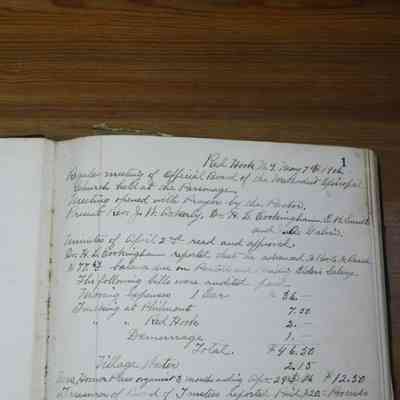 1
Red Hook N.Y. May 7th 1906
Regular meeting of Official Board of the Methodist Episcopal
Church held at the Parsonage.
Meeting opened with Prayer by the Pastor.
Present Rev. J. H. Dr. H. L. Cookingham
and
Minutes of April 2nd read and approved
Dr. H. L. Cookingham reported that he advanced
balance due on Elders Salary.
The following bills were audited paid
Moving Expenses 1 Car $ 36. —
Trucking at Philmont 7.50
" " Red Hook 2. —
Demurrage 1. —
Total $ 46.50
Village Water 2.15
organist 3 months ending Apr 29th 06 $12.50
Treasurer of Board of Trustees reported